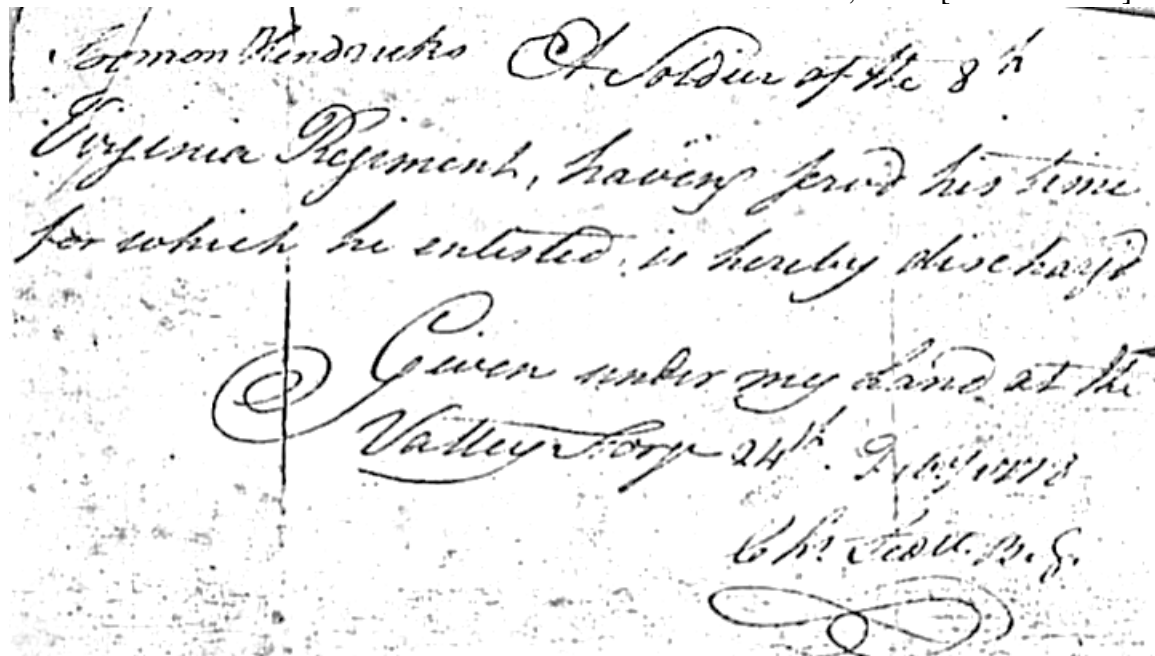 Solomon Hendricks A Soldier of the 8th
Virginia Regiment, having servd his time
for which he enlisted, is hereby dischargd
Given under my Hand at the
Valley Forge 24th. Feby 1778
Chs Scott. B. G.